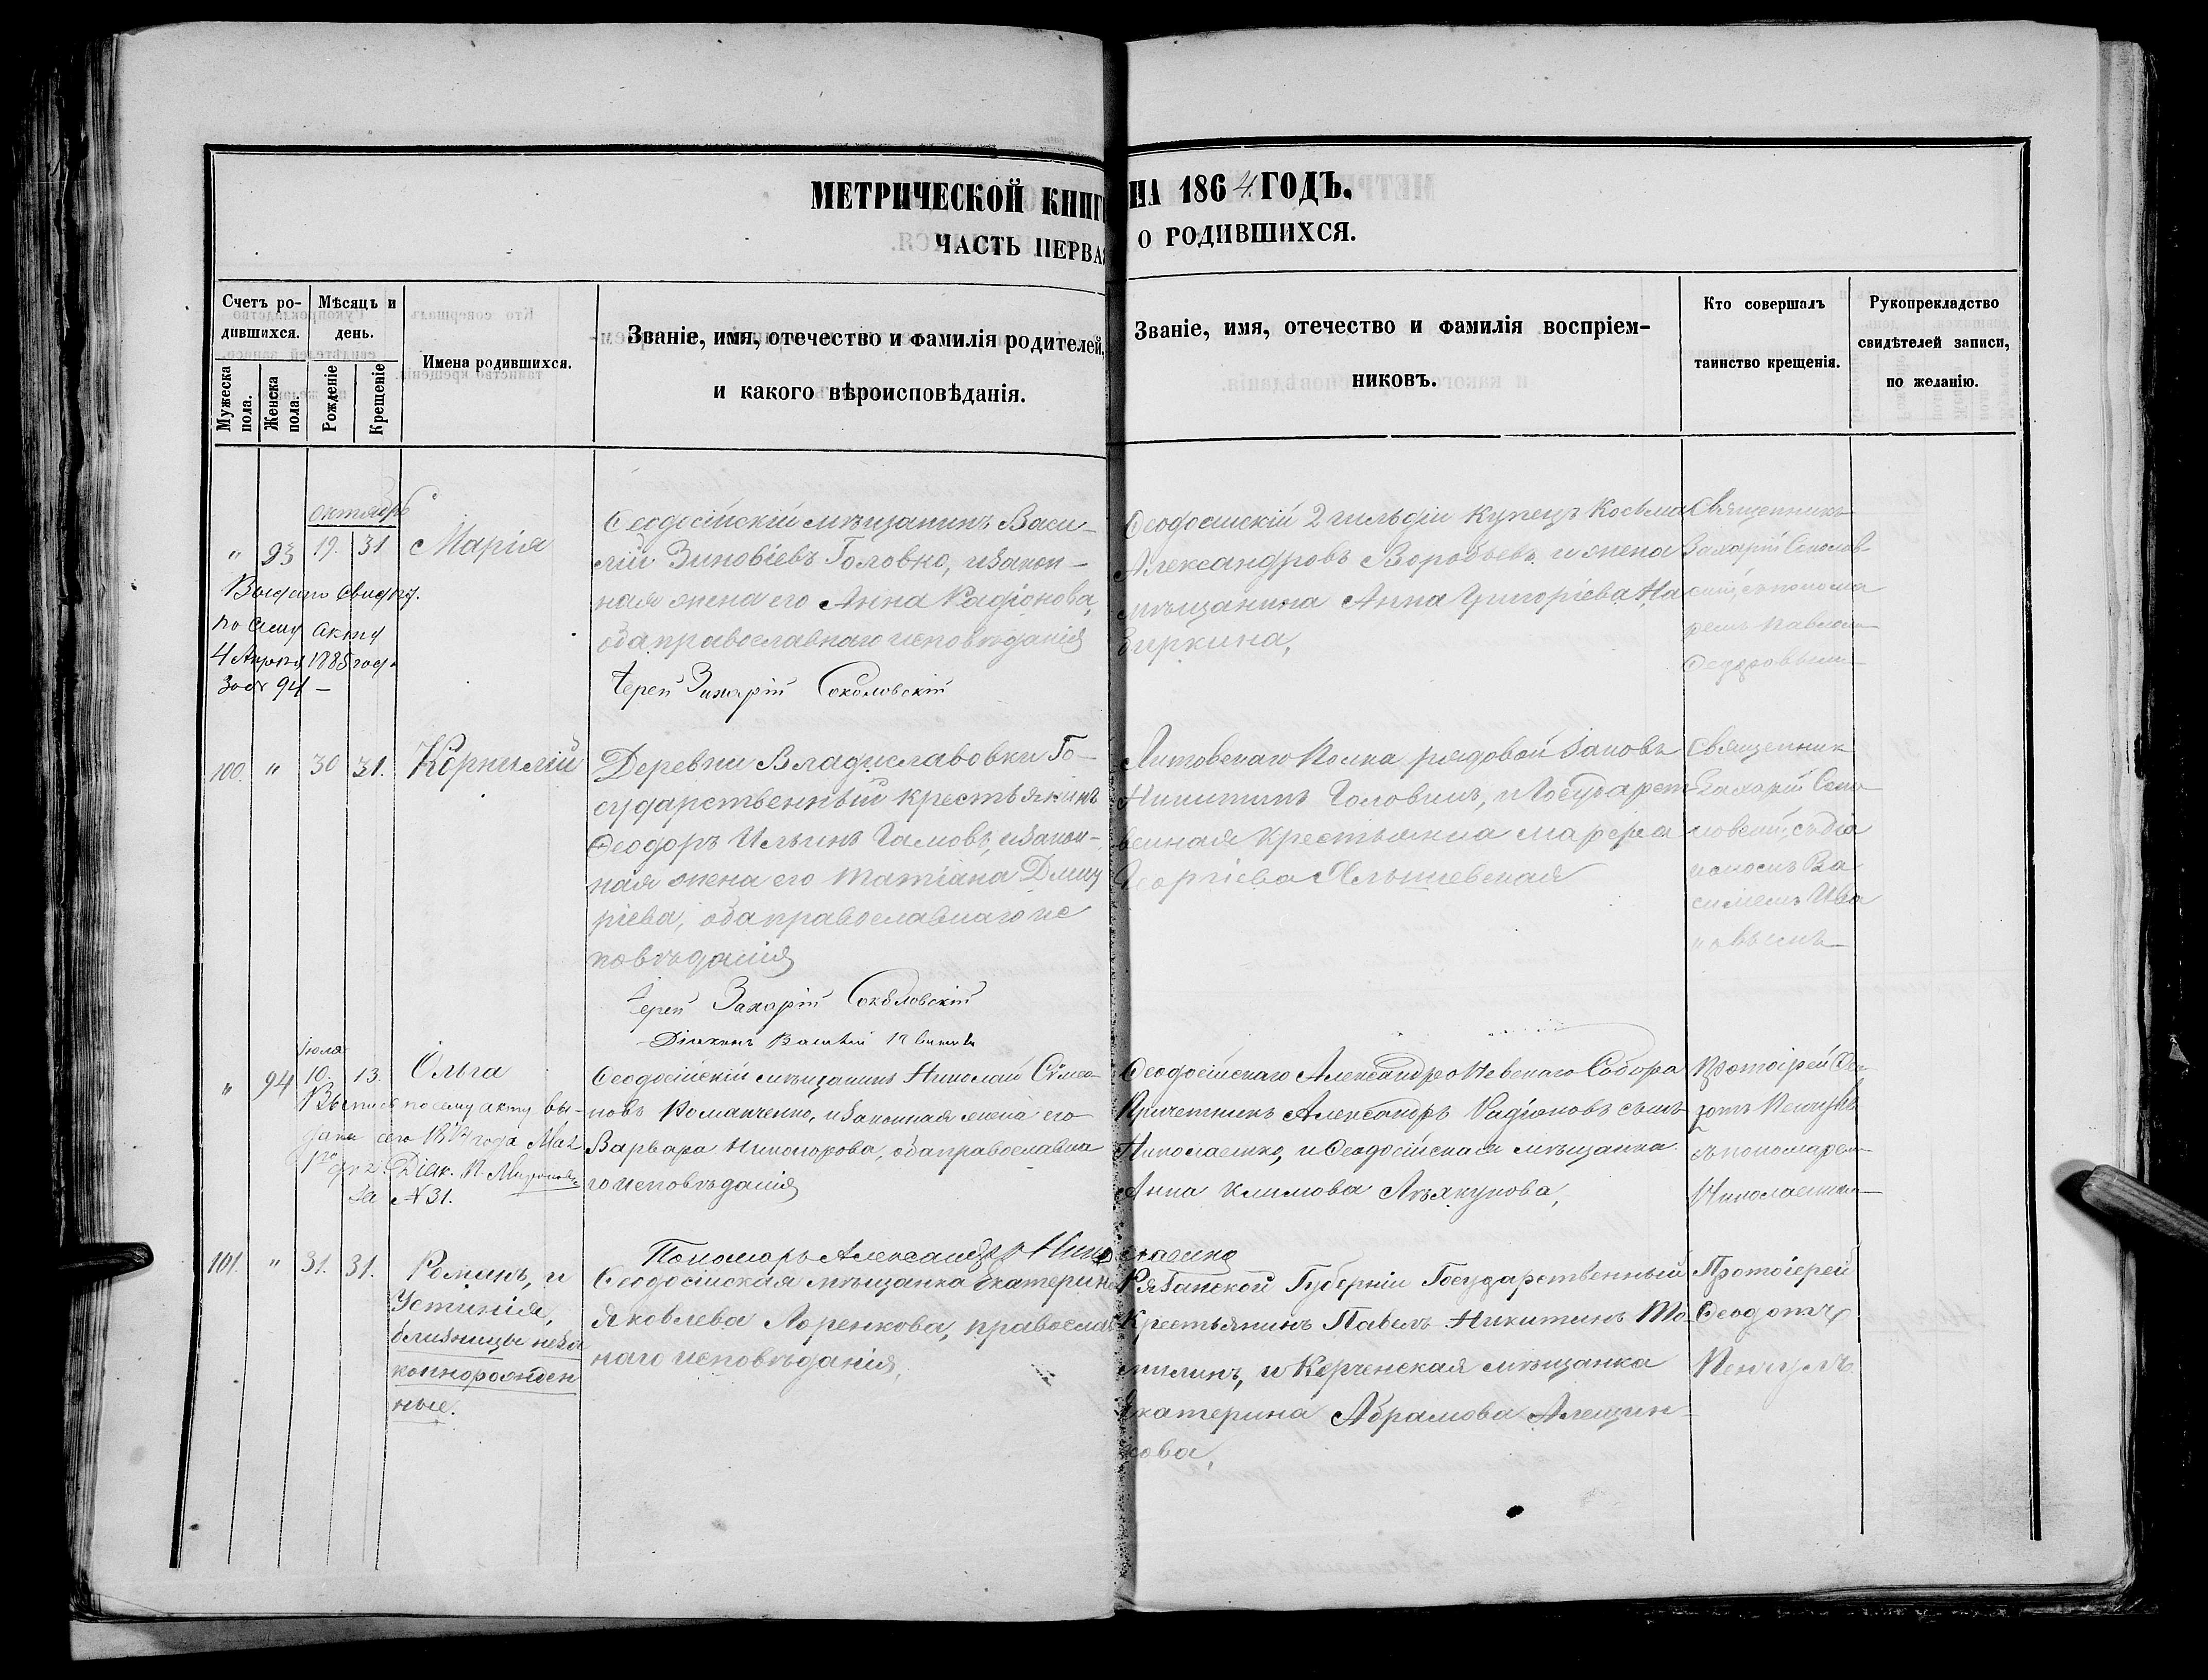 МЕТРИЧЕСКОЙ КНИГ НА 1864 ГОДЪ.
ЧАСТЬ ПЕРВАЯ О РОДИВШИХСЯ.
Счетъ ро-
дившихся.
Мужеска
пола.
Женска
пола.
Мѣсяцъ и
день.
Рожденіе
Крещеніе
Имена родившихся.
Званіе, имя, отечество и фамилія родителей,
и какого вѣроисповѣданія.
Званіе, имя, отечество и фамилія воспріем-
никовъ.
Кто совершалъ
таинство крещенія.
Рукоприкладство
свидѣтелей записи,
по желанію.
октябрь
" 93 19. 31 Марія
Выдано свидѣт.
по сему акту
4 Апрѣля 1885 года
за № 94 –
Ѳеодосійскій мѣщанинъ Васи-
лій Зиновіевъ Головко, и закон-
ная жена его Анна Радіонова,
оба православнаго исповѣданія
Іерей Захарій Соколовскій
Ѳеодосійскій 2 гильдіи купецъ Косьма
Александровъ Воробьевъ и жена
мѣщанина Анна Григоріева
Священникъ
Захарій Соколов-
скій съ понома
ремъ Павломъ
100. " 30 31. Корнилій
Деревни Владиславовки Го-
сударственный крестьянинъ
Ѳеодоръ Ильинъ Гамовъ, и закон-
ная жена его Татіана Дмит
ріева, оба православнаго ис
повѣданія
Іерей Захарій Соколовскій
Діаконъ Василій
Литовскаго Полка рядовой Іаковъ
Никитинъ Головинъ, и Государст
венная крестьянка Марфа
Георгіева
Священник
Захарій Соко
ловскій, съ діа
кономъ Ва
силіемъ Ива
новымъ
Іюля
" 94 10. 13. Ольга
Выпись по сему акту вы-
дана сего года
за № 31.
Ѳеодосійскій мѣщанинъ Николай Сѷмео
новъ Романченко, и законная жена его
Варвара Никонорова, оба православна
го исповѣданія
Пономарь Александръ Николаенко
Ѳеодосійскаго Александро Невскаго Собора
Причетникъ Александръ Радіоновъ сынъ
Николаенко, и Ѳеодосійская мѣщанка
Анна Климова
Протоіерей Ѳео
дотъ
съ пономаремъ
Николаенкомъ
101. " 31. 31. Романъ, и
Устинія,
близницы неза
коннорожден
ные.
Ѳеодосійская мѣщанка Екатерина
Яковлева Лоренкова, православ
наго исповѣданія,
Рязанской Губерніи Государственный
Крестьянинъ Павелъ Никитинъ То
милинъ, и Керченская мѣщанка
Екатерина Абрамова Алещин-
кова,
Протоіерей
Ѳеодотъ